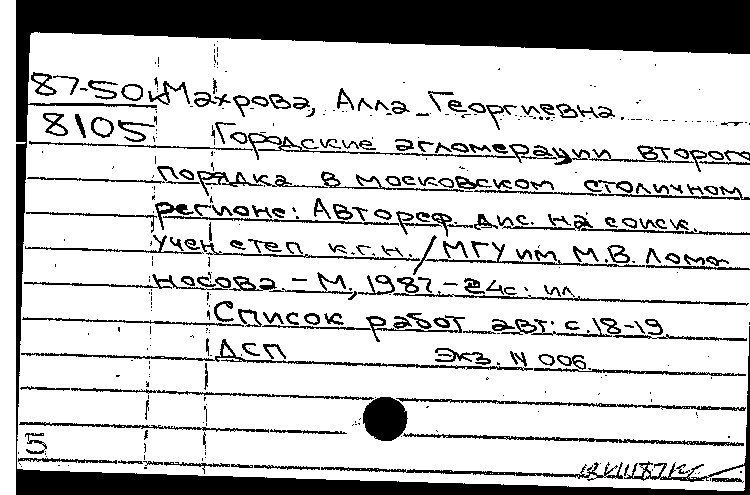 87-50к Махрова, Алла Георгиевна
8105 Городские агломерации второго
порядка в московском столичном
регионе: Автореф. дис. на соиск.
учен степ. к.г.н. / МГУ им. М.В. Ломо
носова. - М, 1987. - 24с. ил.
Список работ авт: с. 18-19.
ДСП Экз. N 006.
5